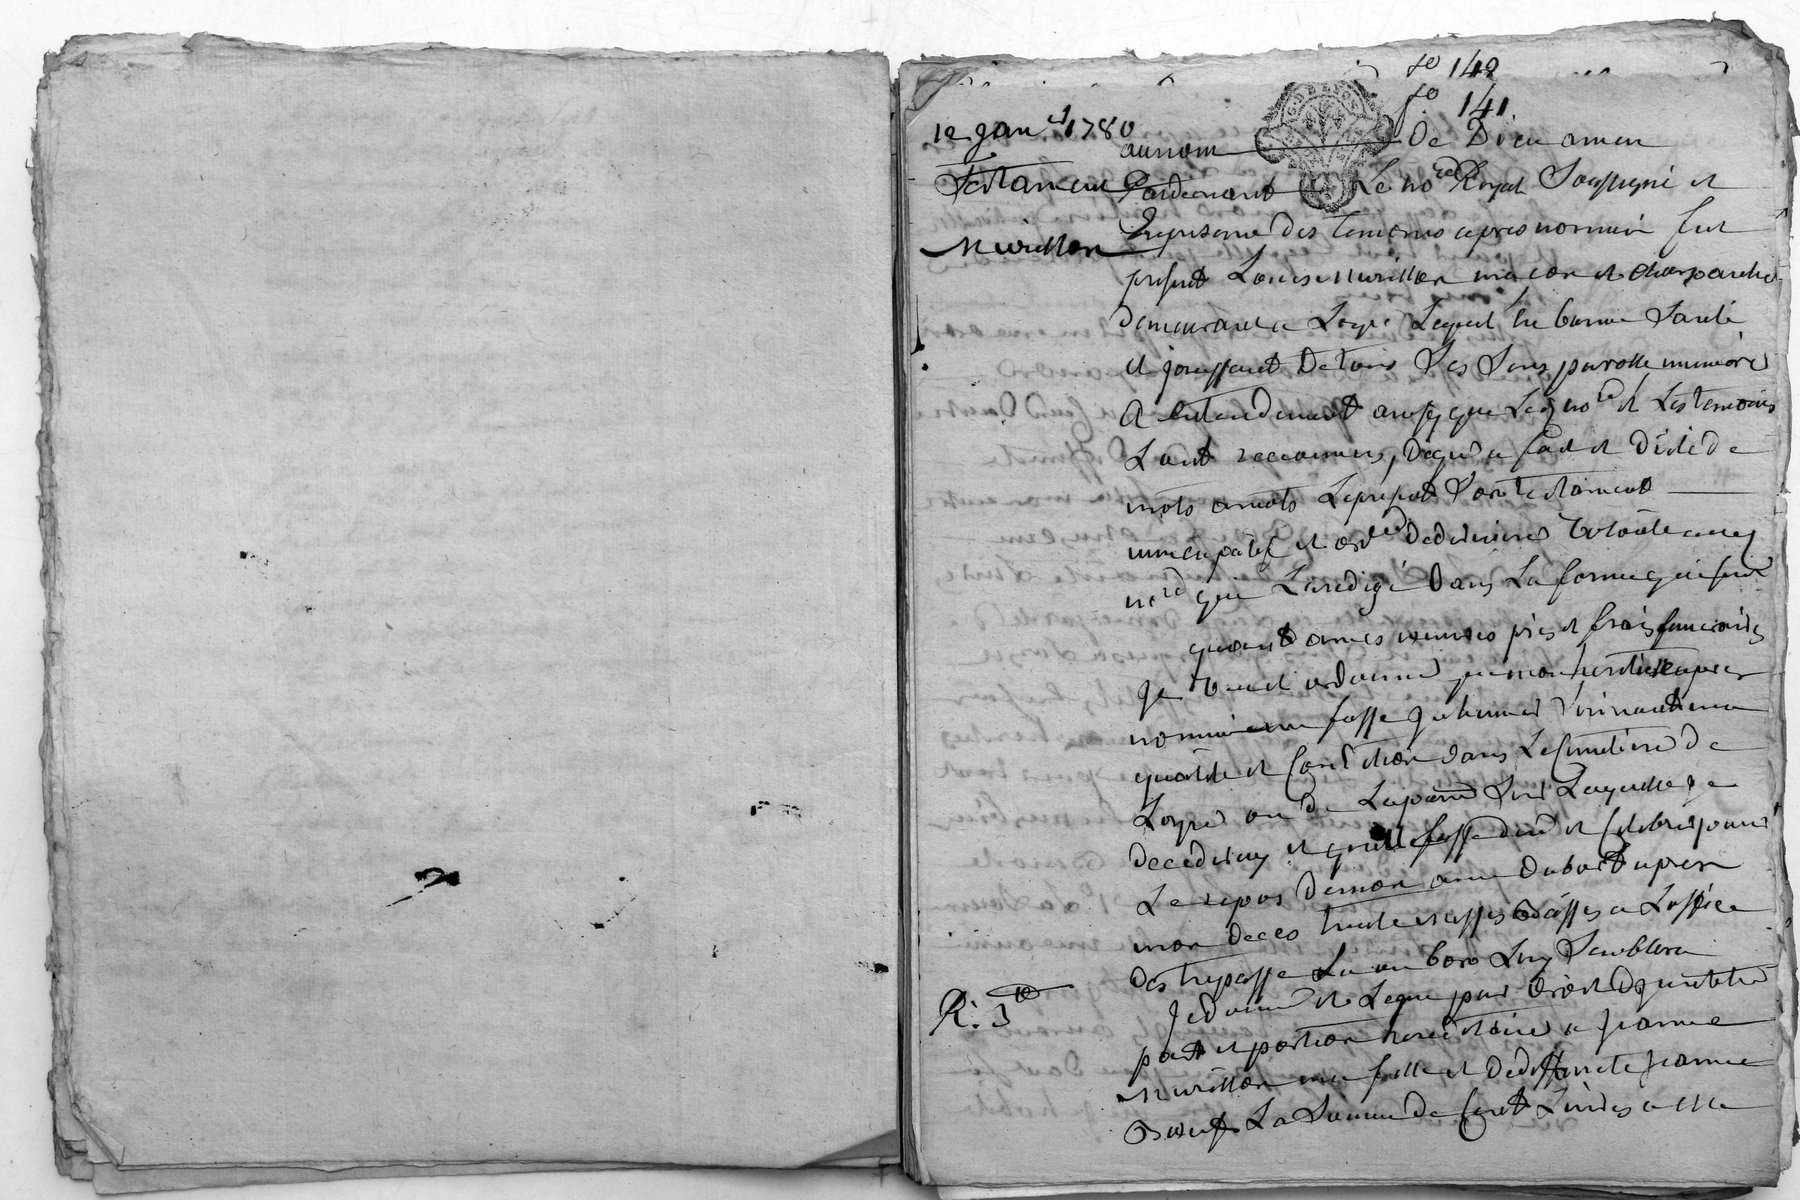 fo 142
fo 141
12 Janer 1780
Testament
Murillon
au nom de Dieu amen
Pardevant Le nore Royal Soussigné et
En presence des temoins apres nommés fut
present Louis Murillon maçon et charpantier
demeurant a Loyre Lequel En bonne Santé
et jouissant de tous Ses Sens parolle memoire
et entendement ainsy que Led nore et Les temoins
L'ont reconnus, Lequel a fait et dicté de
mots a mots Le present Son testament
nuncupatif et ordce de derniere volonté aud
nore qui L'a redigé dans La forme qui suit
quand a mes œuvres pies et frais funeraires
Je veut et ordonne que mon heritiere apres
nommée me fasse Inhumer Suivant ma
qualité et Condition dans Le Cimetiere de
Loyre ou de La paroisse Sur Laquelle Je
decederay et qu'elle fasse dire et Celebrer pour
Le repos de mon ame dabord apres
mon deces trente messes basses a L'office
des trepassé La ou bon Luy Semblera
R. 3te
Je donne et Legue par droit d'Institution
part et portion hereditaire a Jeanne
Murillon ma fille et de deffuncte Jeanne
La Somme de Cent Livres a elle